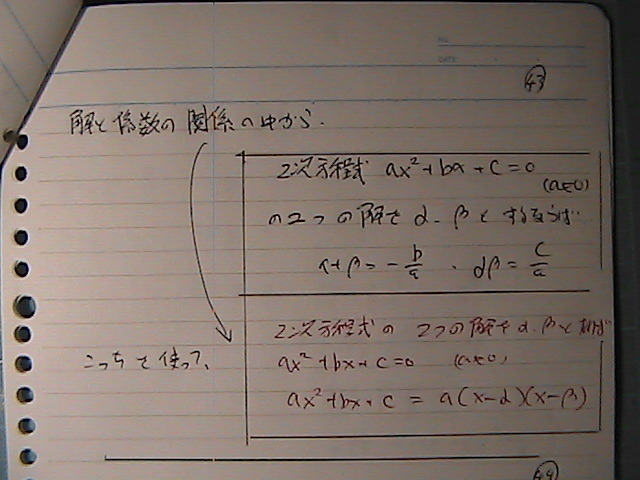 NO.
DATE
43
解と係数の関係の中から.
2次方程式 ax²+bx+c=0
(a≠0)
の2つの解をα.βとするならば
α+β=-b/a . αβ=c/a
2次方程式の2つの解をα.βとすれば
こっちを使って、
ax²+bx+c=0 (a≠0)
ax²+bx+c = a(x-α)(x-β)
44